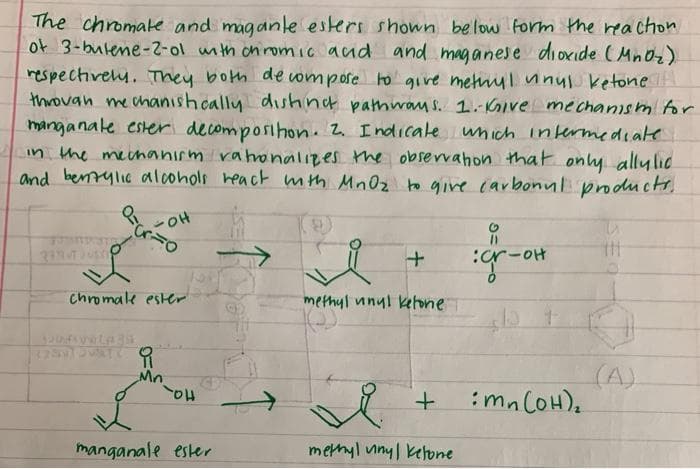 The chromate and maganate esters shown below form the reaction
of 3-butene-2-ol with chromic acid and maganese dioxide (MnO₂)
respectively. They both decompose to give methyl vinyl ketone
through mechanistically distinct pathways. 1. Give mechanism for
manganate ester decomposition. 2. Indicate which intermediate
in the mechanism rationalizes the observation that only allylic
and benzylic alcohols react with MnO₂ to give carbonyl products.
O
Cr
OH
O
O
→
O
+
O
:Cr-OH
O
chromate ester
methyl vinyl ketone
O
Mn
OH
O
→
O
+ :Mn(OH)₂
(A)
manganate ester
methyl vinyl ketone